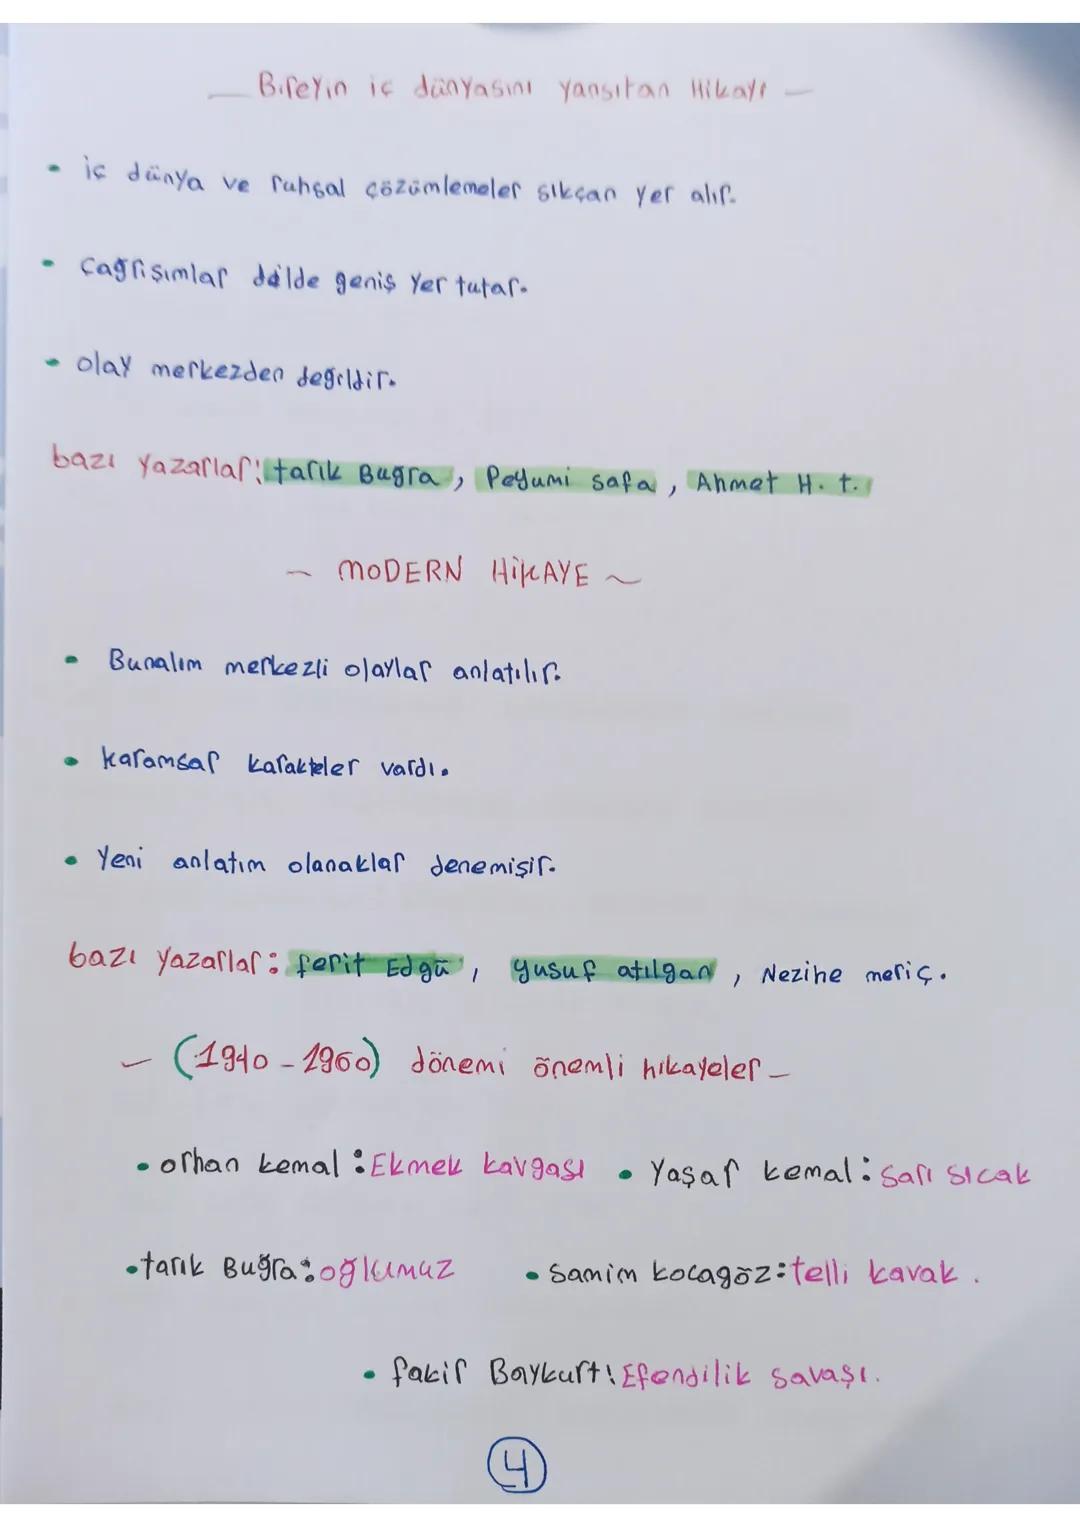 — Bireyin iç dünyasını yansıtan Hikaye —
• iç dünya ve ruhsal çözümlemeler sıkçan yer alır.
• Çağrışımlar dilde geniş yer tutar.
• olay merkezden değildir.
bazı yazarlar: tarık Bugra, Peyami safa, Ahmet H. t.
~ MODERN HİKAYE ~
• Bunalım merkezli olaylar anlatılır.
• karamsar karakteler vardı.
• Yeni anlatım olanaklar denemişir.
bazı yazarlar: ferit Edgü, yusuf atılgan, Nezihe meriç.
— (1940 - 1960) dönemi önemli hikayeler —
• orhan kemal: Ekmek kavgası • Yaşar kemal: sarı sıcak
• tarık Buğra: oğlumuz • samim kocagöz: telli kavak.
• fakir Baykurt: Efendilik savaşı.
4